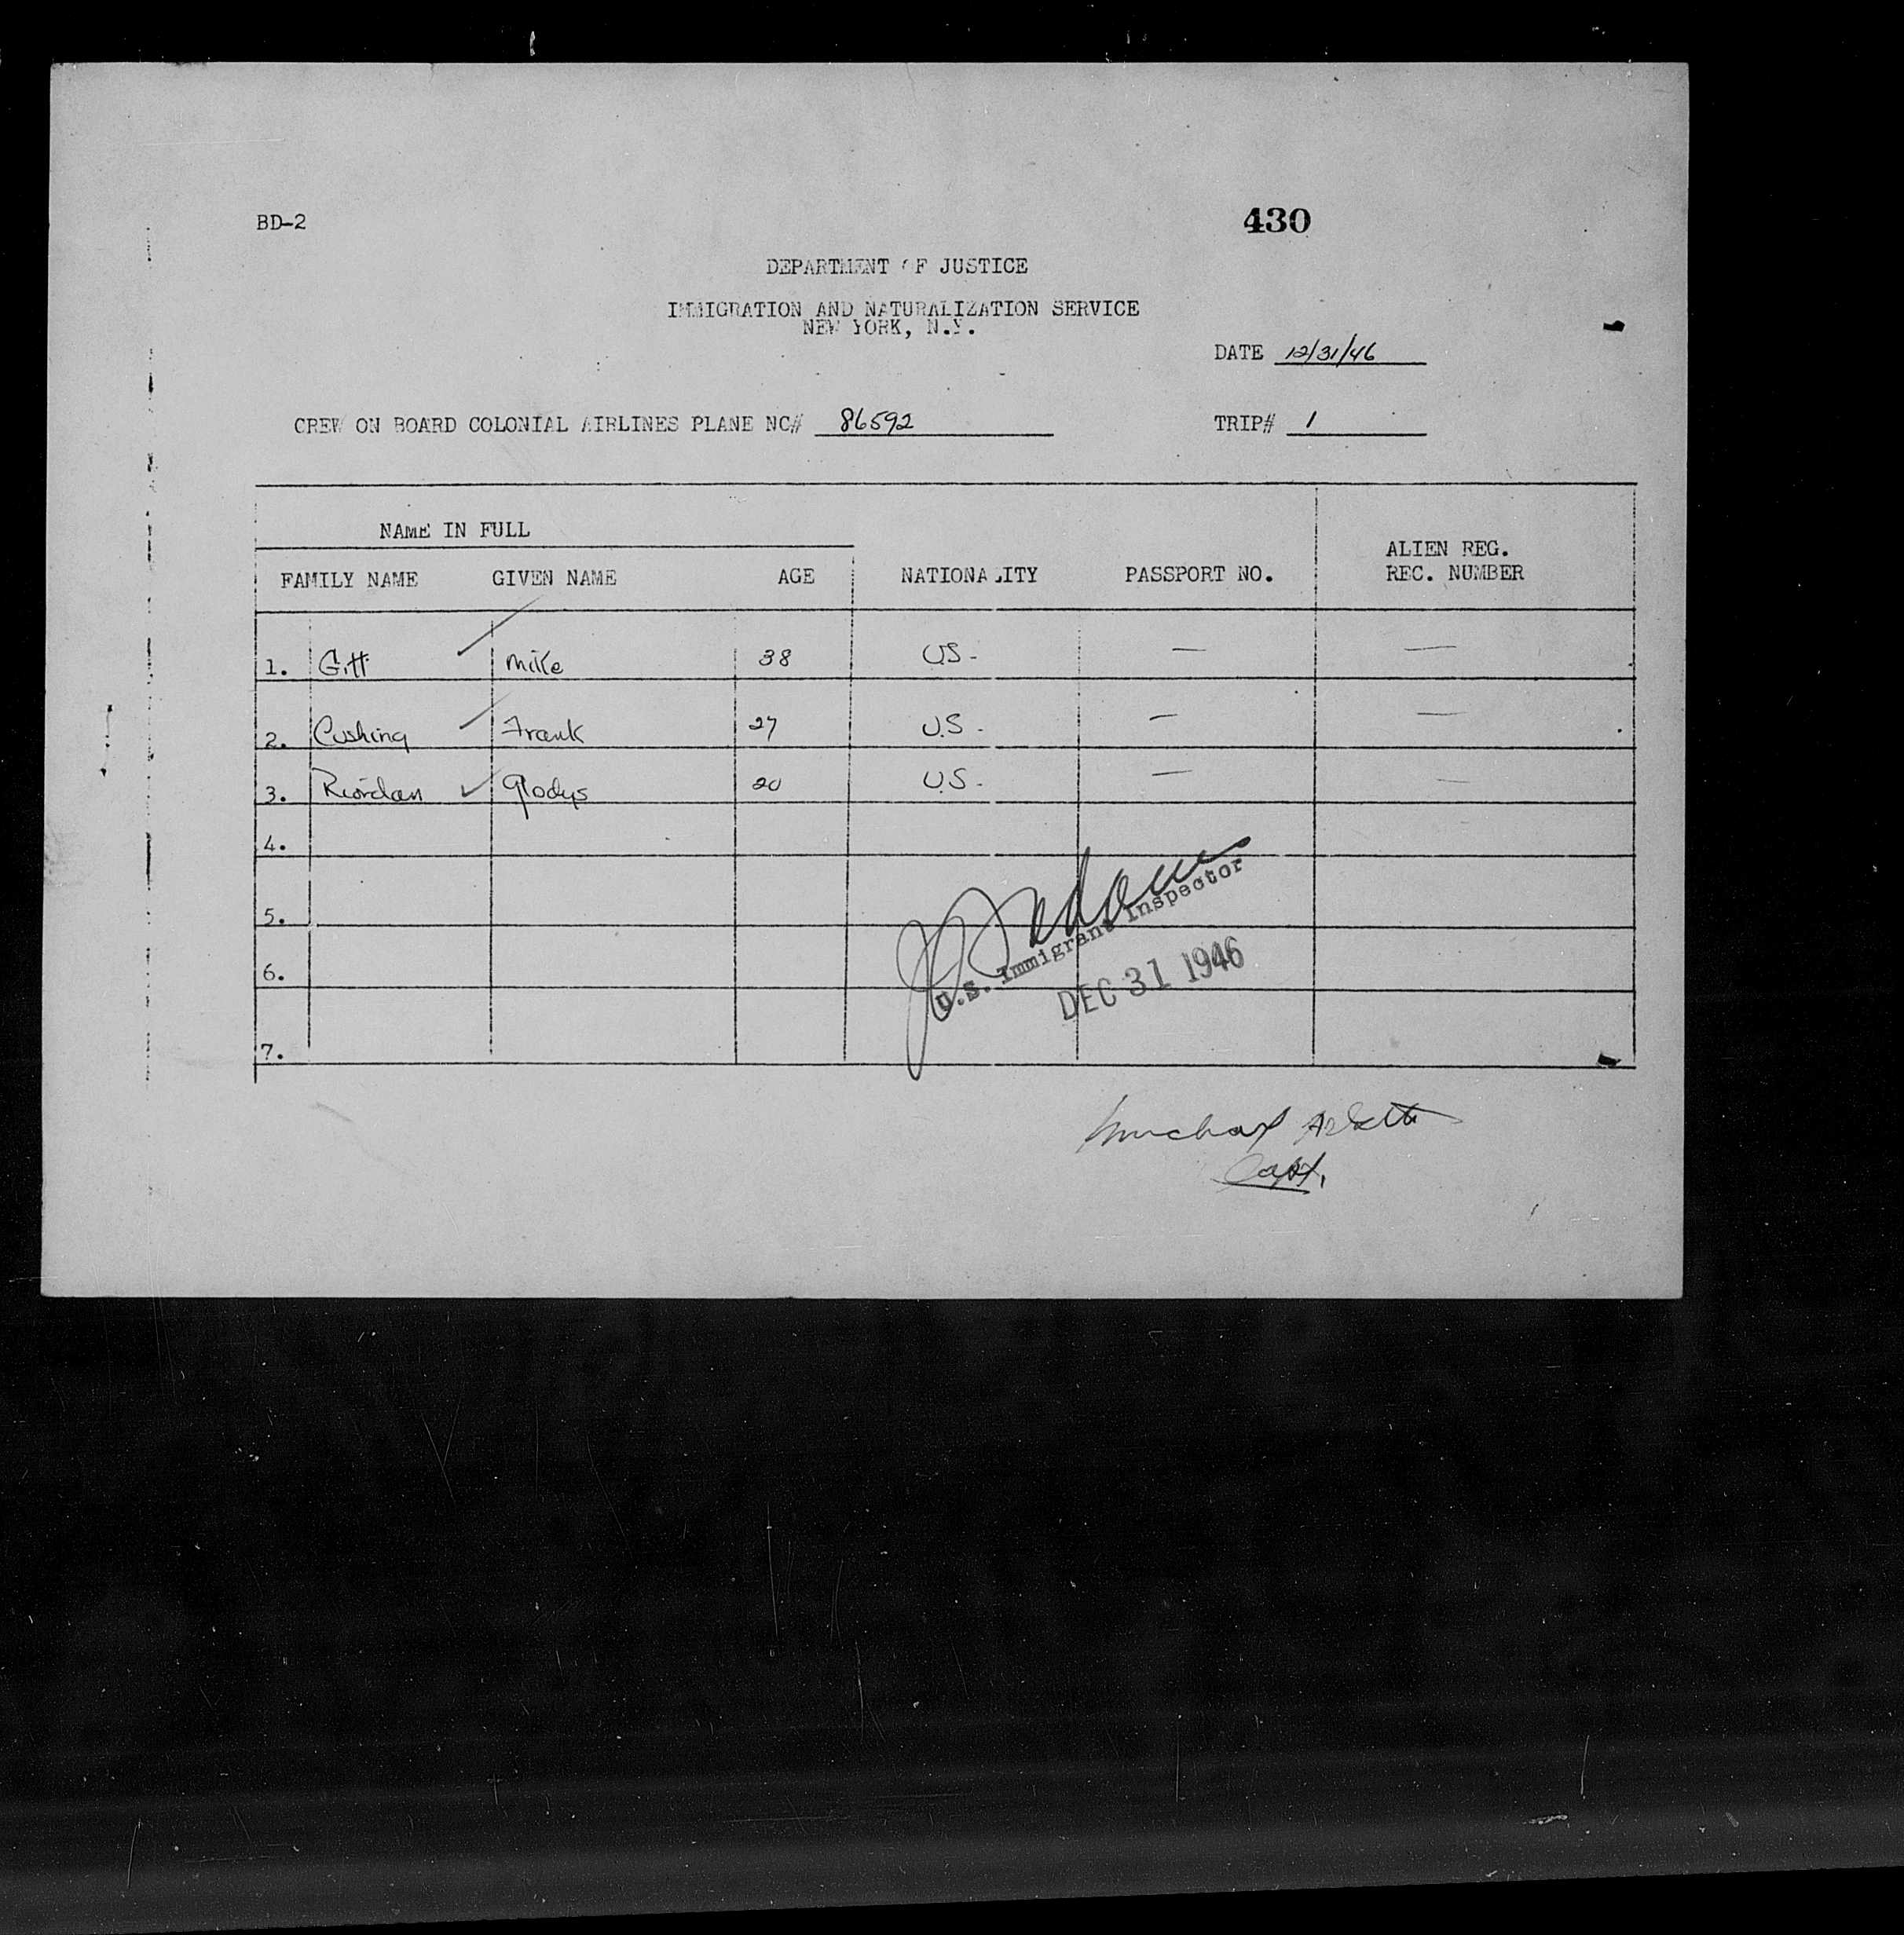 BD-2
430
DEPARTMENT OF JUSTICE
IMMIGRATION AND NATURALIZATION SERVICE
NEW YORK, N.Y.
DATE 12/31/46
CREW ON BOARD COLONIAL AIRLINES PLANE NC# 86592 TRIP# 1
NAME IN FULL
FAMILY NAME GIVEN NAME AGE NATIONALITY PASSPORT NO. ALIEN REG. REC. NUMBER
1. Gitt Mike 38 U.S - — —
2. Cushing Frank 27 U.S - — —
3. Riordan Gladys 20 U.S - — —
4.
5.
6.
7.
U.S. Immigrant Inspector
DEC 31 1946
Michael
Capt.